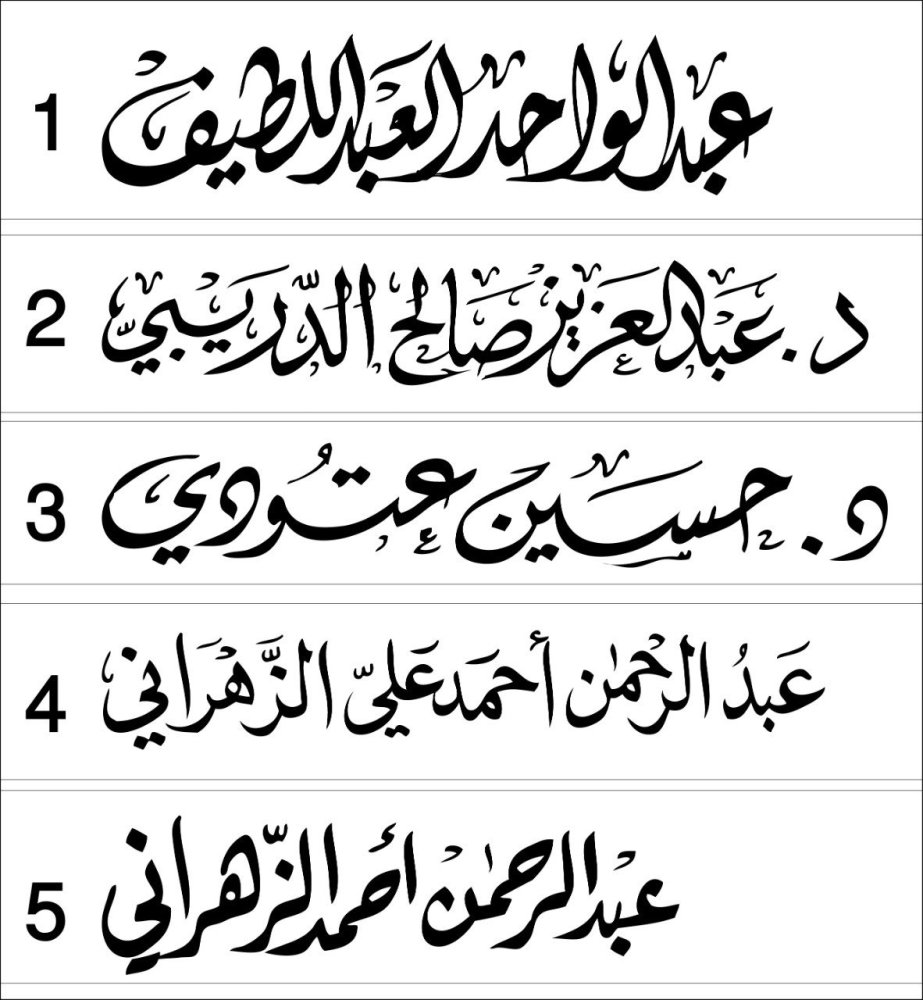 1 عبدالواحد العبداللطيف
2 د. عبدالعزيز صالح الدّريبيّ
3 د. حسين عتودي
4 عَبدُ الرحمٰن أحمَد عَليّ الزَّهرَاني
5 عبدالرحمٰن أحمد الزّهراني